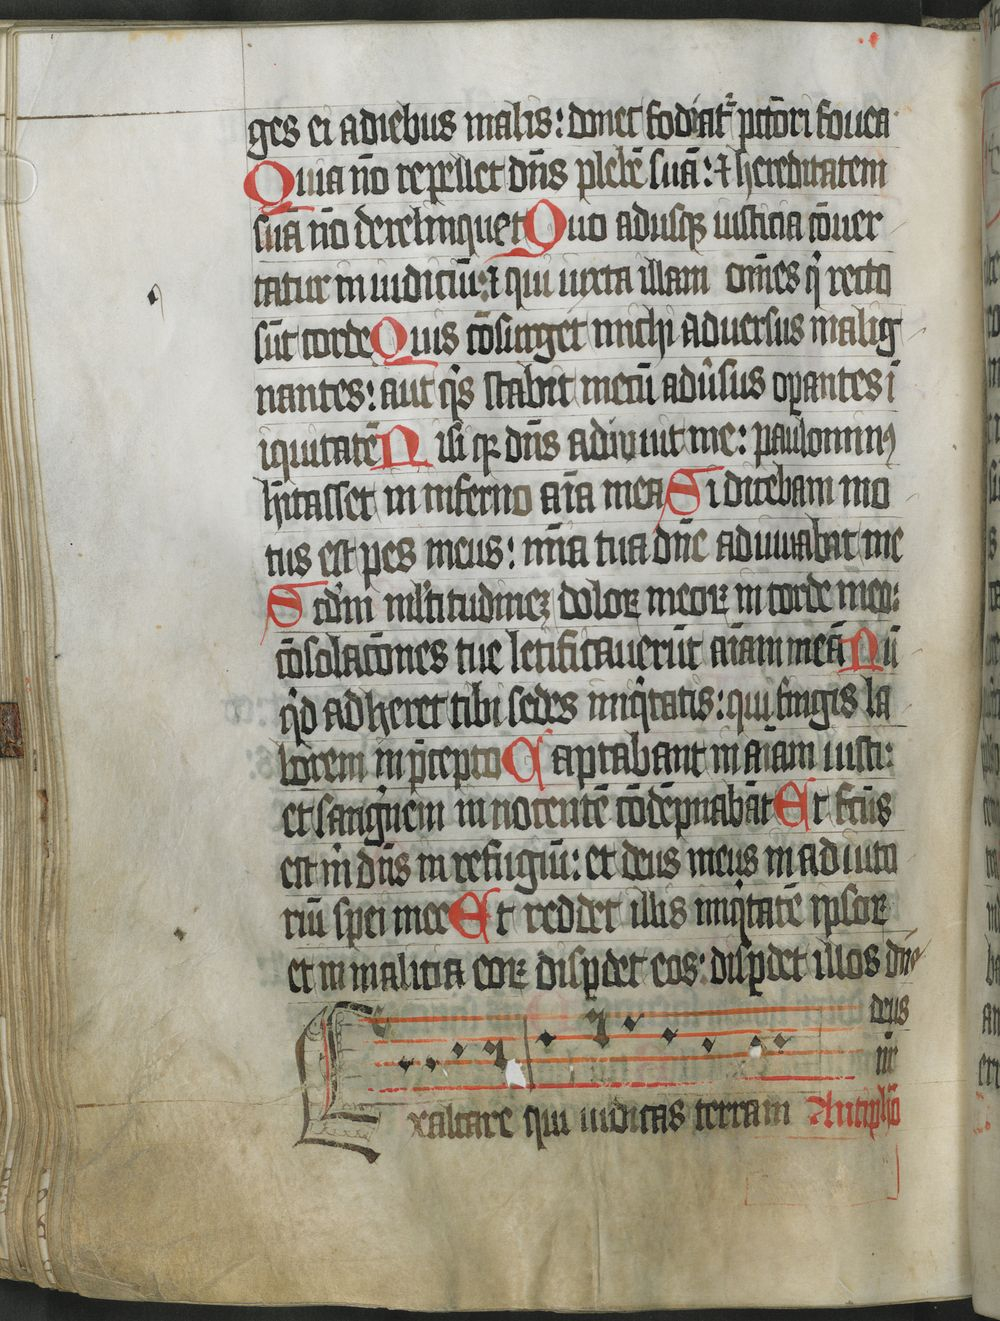 ges ei adiebus malis: donec fodiat᷑ pctōri fouea
Quia nō repellet dn̄s plebē suā: ⁊ hereditatem
suā nō derelinquet Quo adusqꝫ iusticia cōuer
tatur in iudiciū: ⁊ qui iuxta illam om̄es q̄ recto
sūt corde Quis cōsurget michi aduersus malig
nantes: aut q̄s stabit mecū adūsus opantes ī
iquitatē Nisi qꝫ dn̄s adiuuit me: paulominꝰ
hītasset in inferno aīa mea Si dicebam mo
tus est pes meus: mīa tua dn̄e adiuuabat me
Scdm̄ ml̄titudinez dolorꝝ meorꝝ in corde meo:
cōsolacōnes tue letificauerūt aīam meā Nū
q̄d adheret tibi sedes iniq̄tatis: qui fingis la
borem in p̄cepto Captabant in aīam iusti:
et sangnem innocentē cōdēpnabāt Et fcūs
est m̄ dn̄s in refugiū: et deus meus in adiuto
riū spei mee Et reddet illis iniq̄tatē ipsorꝝ
et in malicia eorꝝ disꝑdet eos: disꝑdet illos dn̄s
deus
nr̄
Exaltare qui iudicas terram Antiph̄o